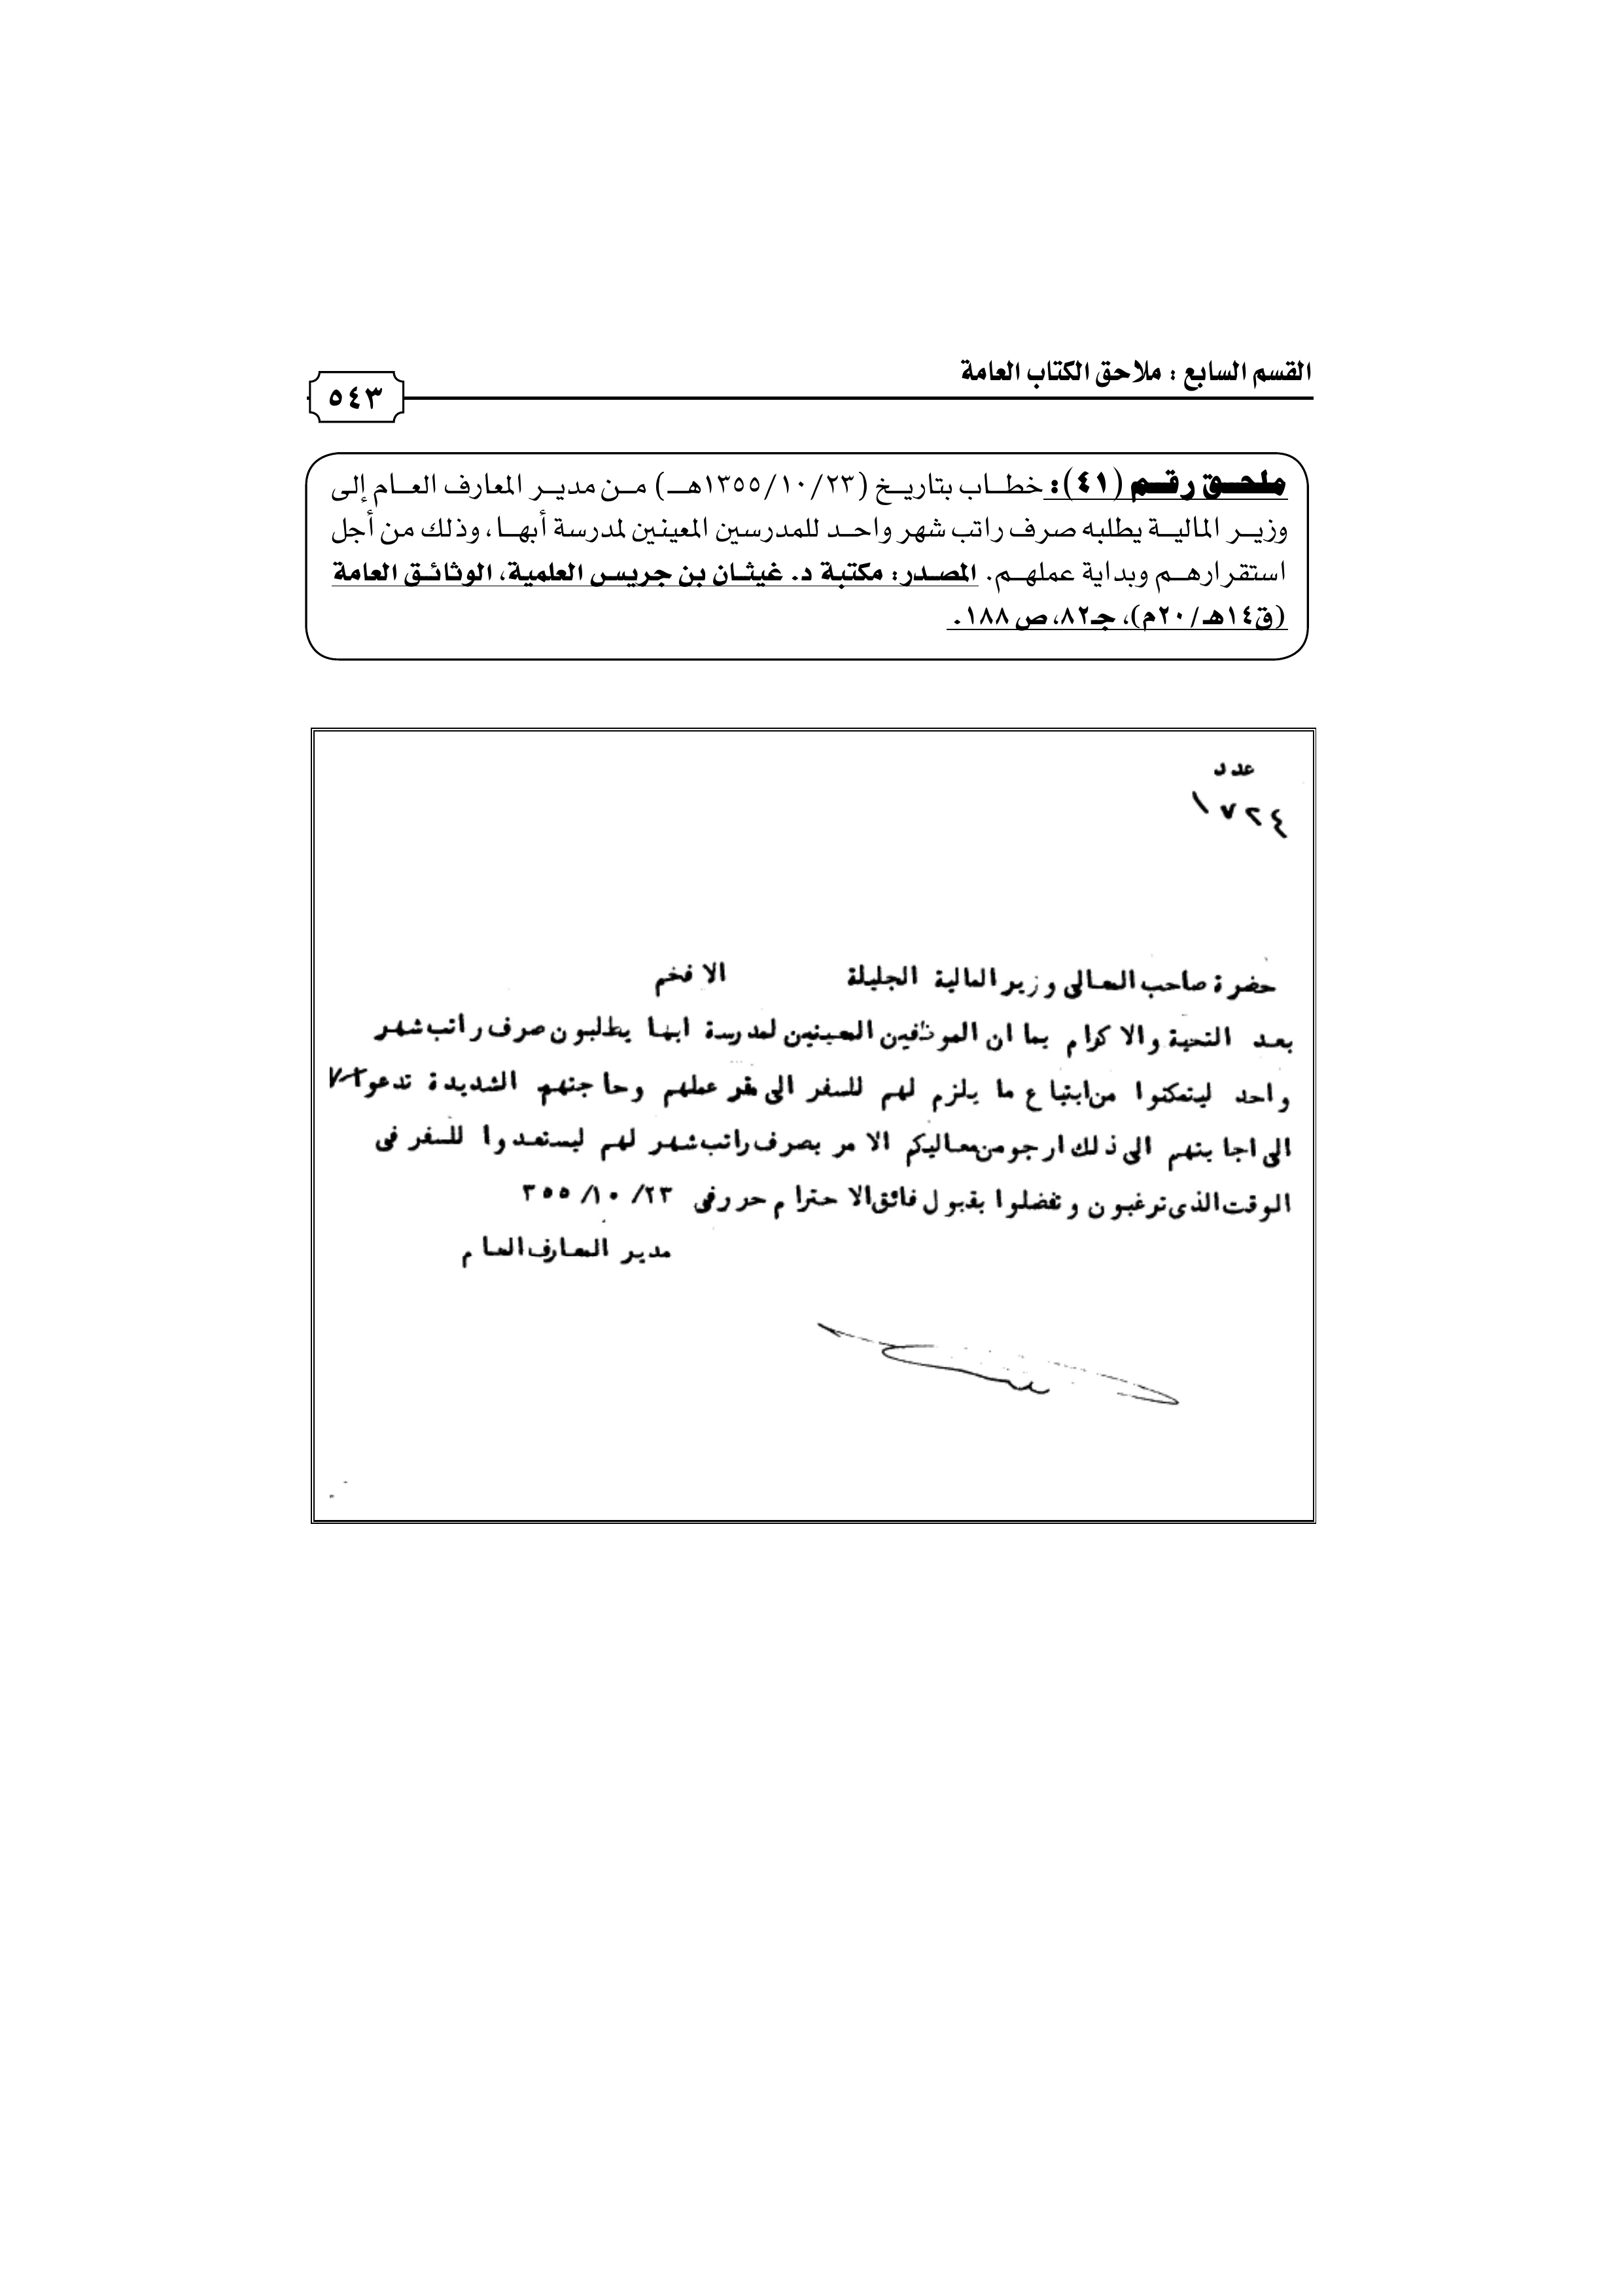 القسم السابع : ملاحق الكتاب العامة
٥٤٣
ملحق رقم (٤١): خطاب بتاريخ (١٣٥٥/١٠/٢٣هـ) من مدير المعارف العام إلى
وزير المالية يطلبه صرف راتب شهر واحد للمدرسين المعينين لمدرسة أبها، وذلك من أجل
استقرارهم وبداية عملهم. المصدر: مكتبة د. غيثان بن جريس العلمية، الوثائق العامة
(ق١٤هـ/٢٠م)، جـ٨٢، ص ١٨٨.
عدد
١٧٢٤
حضرة صاحب المعالى وزير المالية الجليلة الافخم
بعد التحية والاكرام بما ان الموظفين المعينين لمدرسة ابها يطلبون صرف راتب شهر
واحد ليتمكنوا من ابتياع ما يلزم لهم للسفر الى مقر عملهم وحاجتهم الشديدة تدعوا
الى اجابتهم الى ذلك ارجو من معاليكم الامر بصرف راتب شهر لهم ليستعدوا للسفر فى
الوقت الذى ترغبون وتفضلوا بقبول فائق الاحترام حرر فى ٢٣/ ١٠/ ٣٥٥
مدير المعارف العام